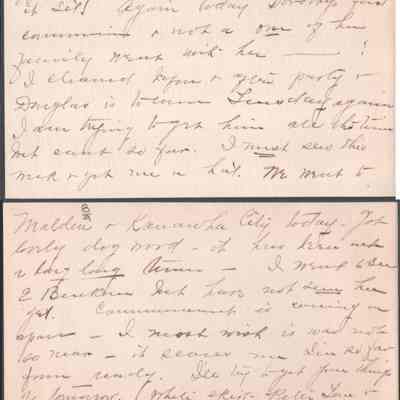 it Set! Again today Dorothy
& not a one of her
family went with her — !
I cleaned before & after party &
Douglas is to come Tuesday again
I am trying to get him all the time
but cant so far. I must sew this
week & get me a hat. We went to
Malden & Kanawha City today - Got
lovely dog wood - it has been out
a long long time - I went to see
E but have not seen her
yet. Commencement is coming on
again - I most wish it was not
so near - it scares me I'm so far
from ready. I'll try to get your things
tomorrow. White skirt